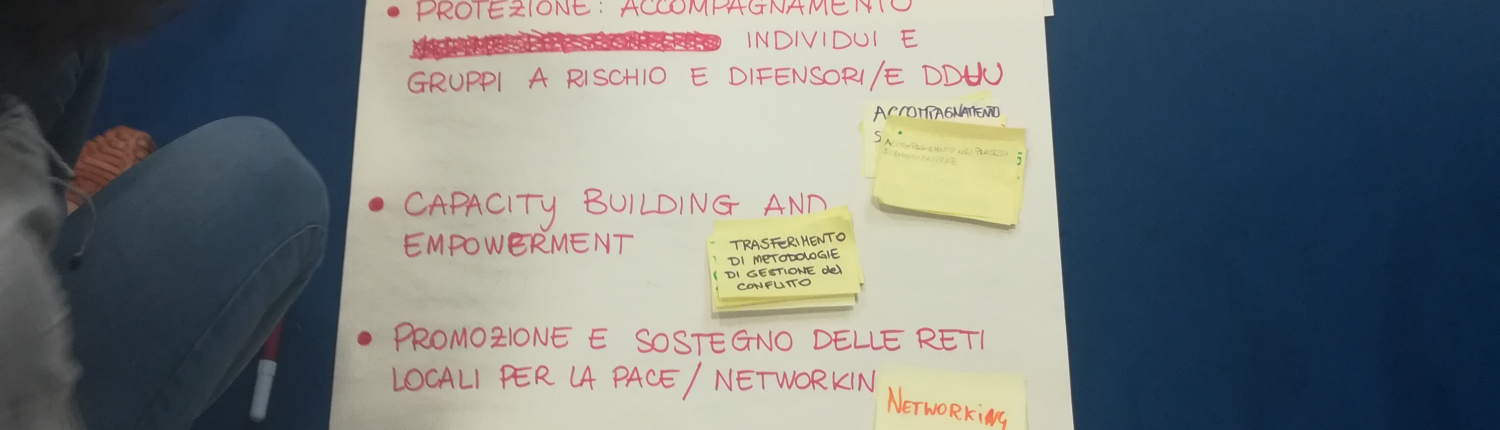 • PROTEZIONE: ACCOMPAGNAMENTO
INDIVIDUI E
GRUPPI A RISCHIO E DIFENSORI/E DDUU
ACCOMPAGNAMENTO
S
• CAPACITY BUILDING AND
EMPOWERMENT
TRASFERIMENTO
DI METODOLOGIE
DI GESTIONE del
CONFLITTO
• PROMOZIONE E SOSTEGNO DELLE RETI
LOCALI PER LA PACE/ NETWORKIN
NETWORKiNG